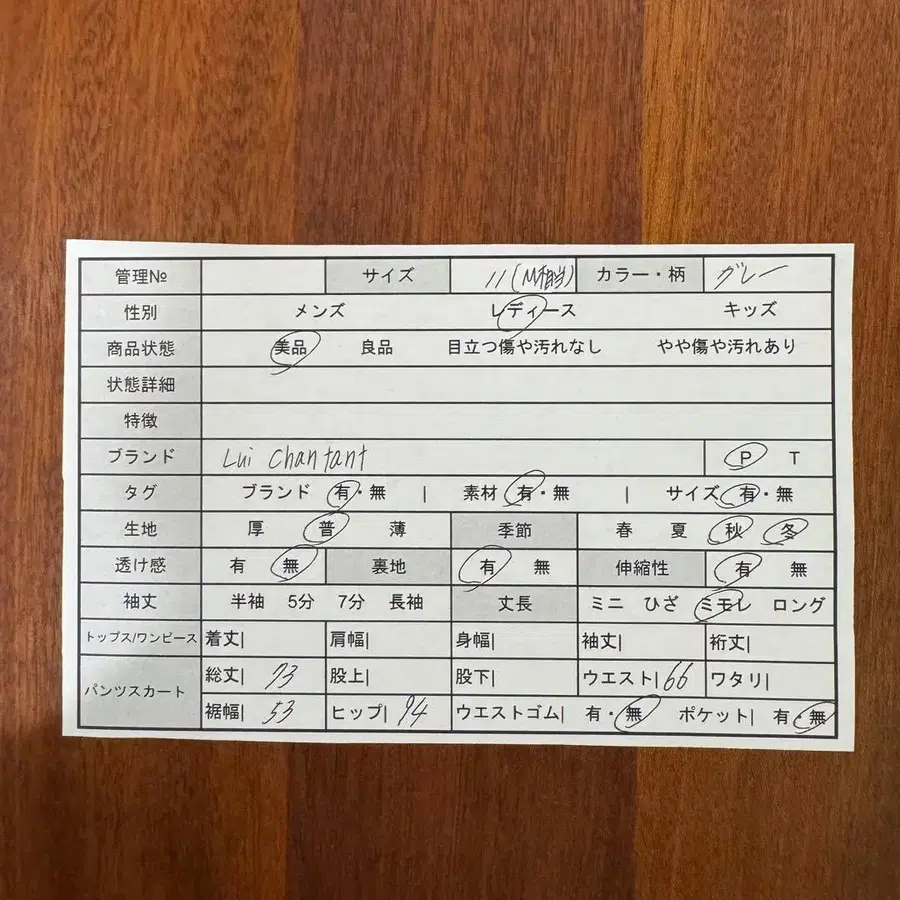 管理№ サイズ 11(M相当) カラー・柄 グレー
性別 メンズ レディース キッズ
商品状態 美品 良品 目立つ傷や汚れなし やや傷や汚れあり
状態詳細
特徴
ブランド Lui Chantant P T
タグ ブランド 有・無 | 素材 有・無 | サイズ 有・無
生地 厚 普 薄 季節 春 夏 秋 冬
透け感 有 無 裏地 有 無 伸縮性 有 無
袖丈 半袖 5分 7分 長袖 丈長 ミニ ひざ ミモレ ロング
トップス/ワンピース 着丈| 肩幅| 身幅| 袖丈| 裄丈|
パンツスカート 総丈| 73 股上| 股下| ウエスト| 66 ワタリ|
裾幅| 53 ヒップ| 94 ウエストゴム| 有・無 ポケット| 有・無